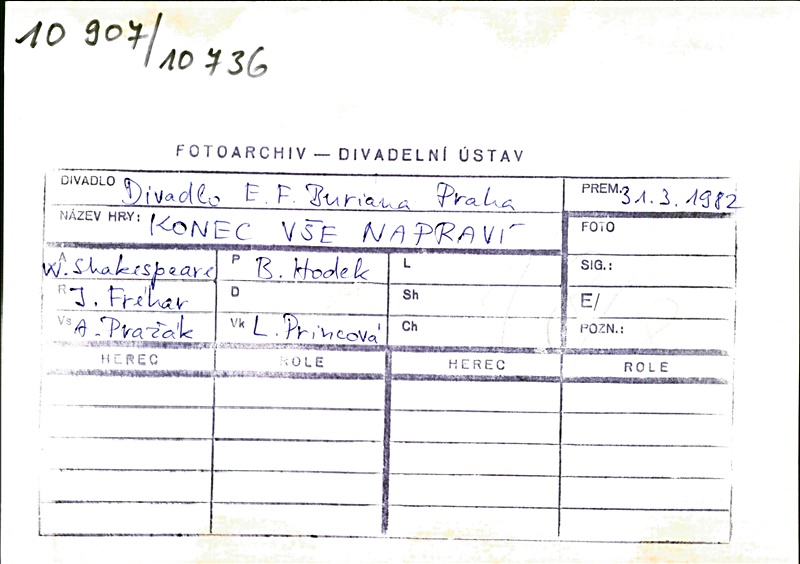 10 907/
10 736
FOTOARCHIV — DIVADELNÍ ÚSTAV
DIVADLO Divadlo E. F. Buriana Praha PREM. 31.3.1982
NÁZEV HRY: KONEC VŠE NAPRAVÍ FOTO
A W. Shakespeare P B. Hodek L SIG.:
R J. Fréhar D Sh E/
Vs A. Pražák Vk L. Princová Ch POZN.:
HEREC ROLE HEREC ROLE